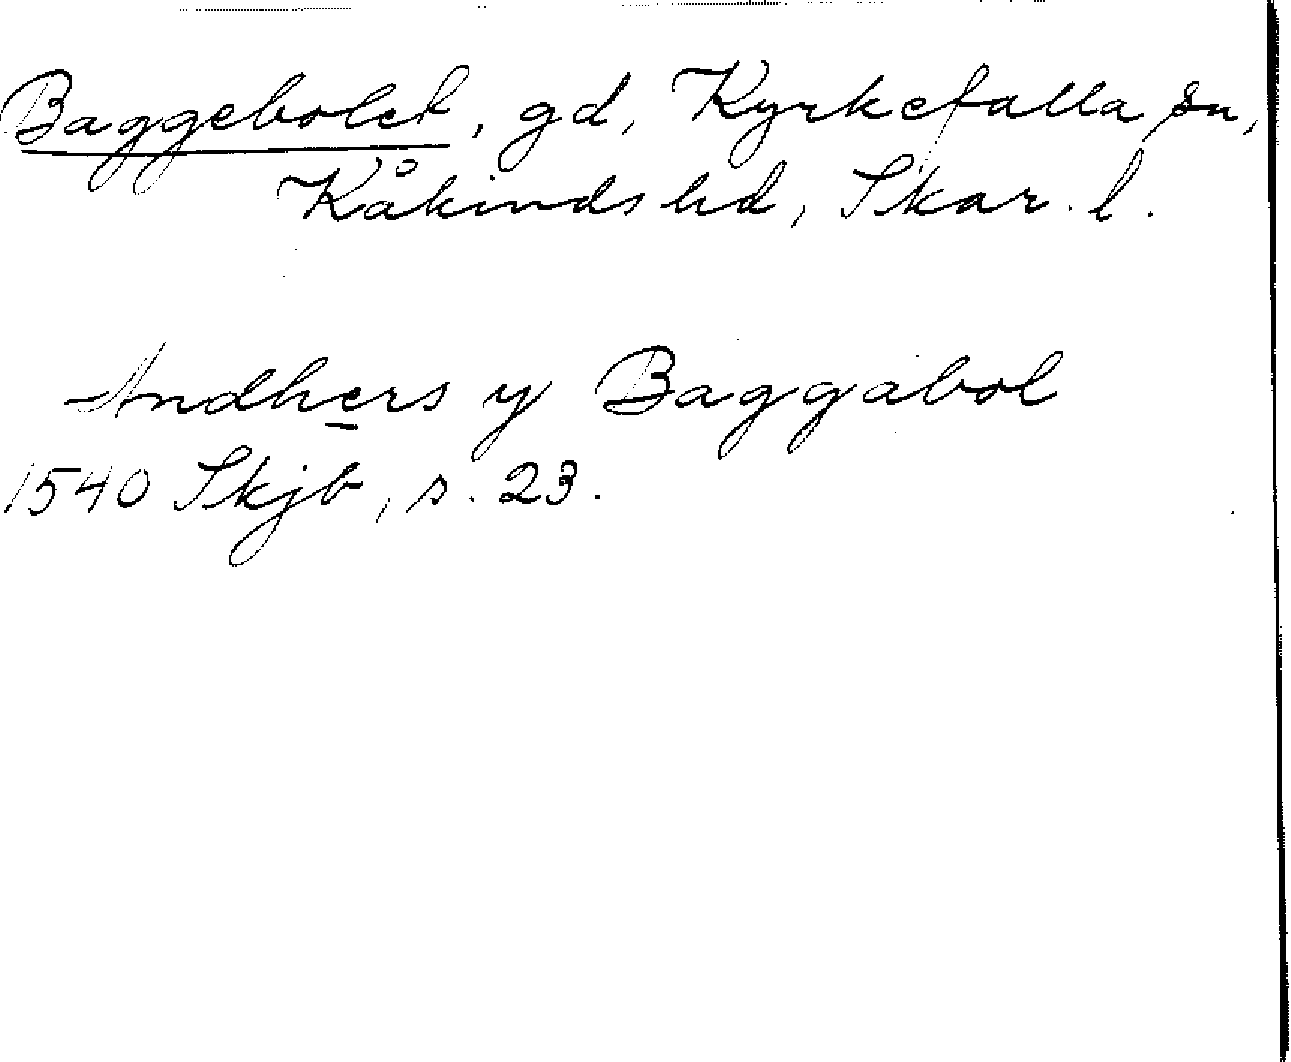 Baggebolet, gd, Kyrkefalla sn,
Kåkinds hd, Skar. l.
Andhers y Baggabol
1540 Skjb, s. 23.